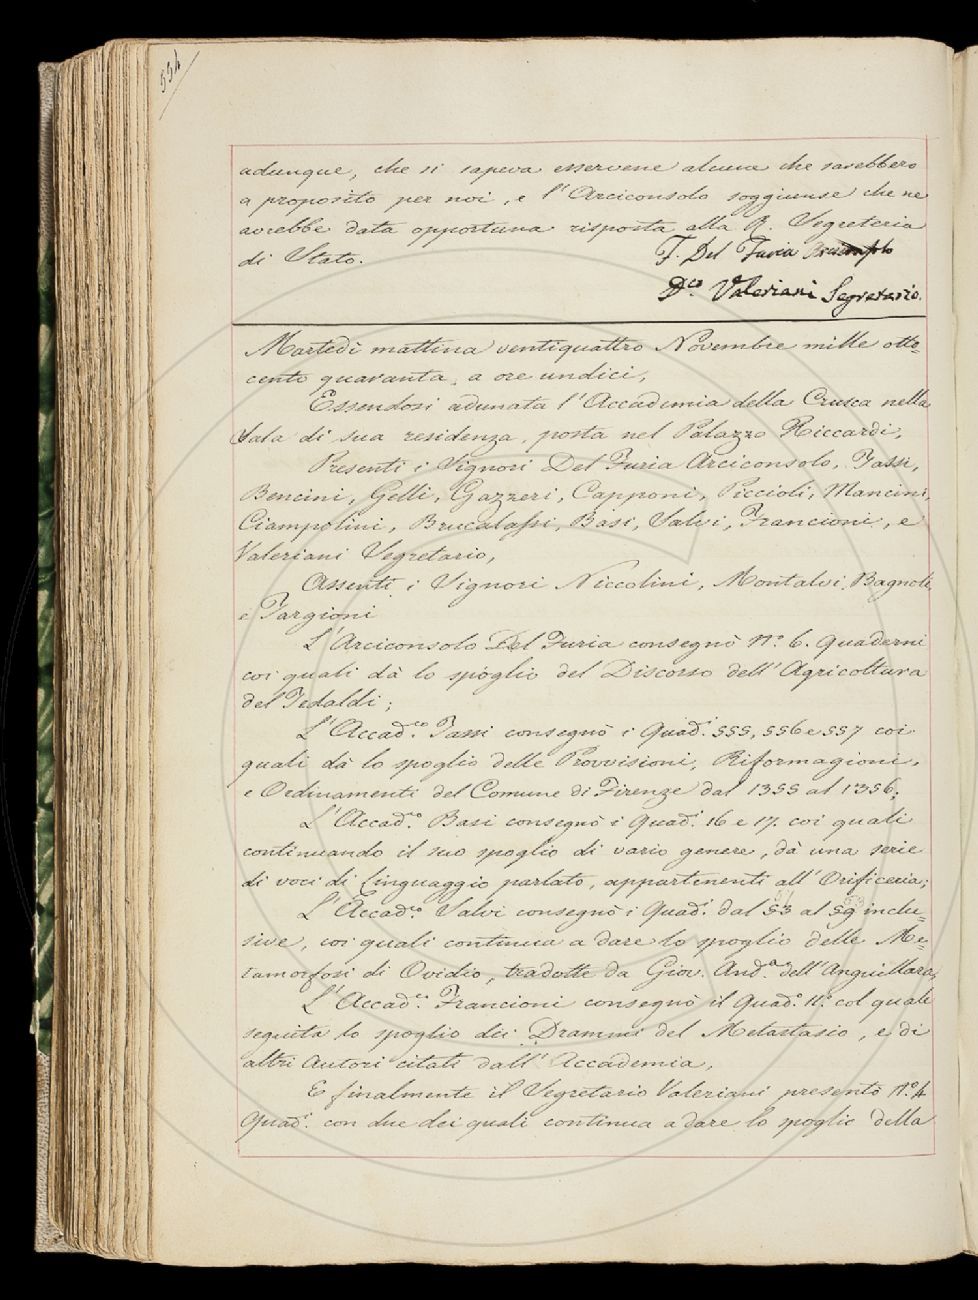 554
adunque, che si sapeva esservene alcuna che sarebbero
a proposito per noi, e l'Arciconsolo soggiunse che ne
avrebbe data opportuna risposta alla R. Segreteria
di Stato.
F. Del Furia Arciconsolo
Dco. Valeriani Segretario.
Martedì mattina ventiquattro Novembre mille otto=
cento quaranta, a ore undici,
Essendosi adunata l'Accademia della Crusca nella
Sala di sua residenza, posta nel Palazzo Riccardi,
Presenti i Signori Del Furia Arciconsolo, Tassi,
Bencini, Gelli, Gazzeri, Capponi, Piccioli, Mancini,
Ciampolini, Brucalassi, Basi, Salvi, Francioni, e
Valeriani Segretario,
Assenti i Signori Niccolini, Montalvi, Bagnoli,
e Targioni
L'Arciconsolo Del Furia consegnò N.° 6. quaderni
coi quali dà lo spoglio del Discorso dell'Agricoltura
del Tedaldi;
L'Accad.co Tassi consegnò i Quad.i 555, 556 e 557 coi
quali dà lo spoglio delle Provvisioni, Riformagioni,
e Ordinamenti del Comune di Firenze dal 1355 al 1356;
L'Accad.co Basi consegnò i Quad.i 16 e 17. coi quali
continuando il suo spoglio di vario genere, dà una serie
di voci di linguaggio parlato, appartenenti all'Orificeria;
L'Accad.co Salvi consegnò i Quad.i dal 53 al 59 inclu=
sive, coi quali continua a dare lo spoglio delle Me=
tamorfosi di Ovidio, tradotte da Giov. And.a dell'Anguillara;
L'Accad.co Francioni consegnò il Quad.° 11.° col quale
seguita lo spoglio dei Drammi del Metastasio, e di
altri Autori citati dall'Accademia,
E finalmente il Segretario Valeriani presentò N.° 4
Quad.i con due dei quali continua a dare lo spoglio della